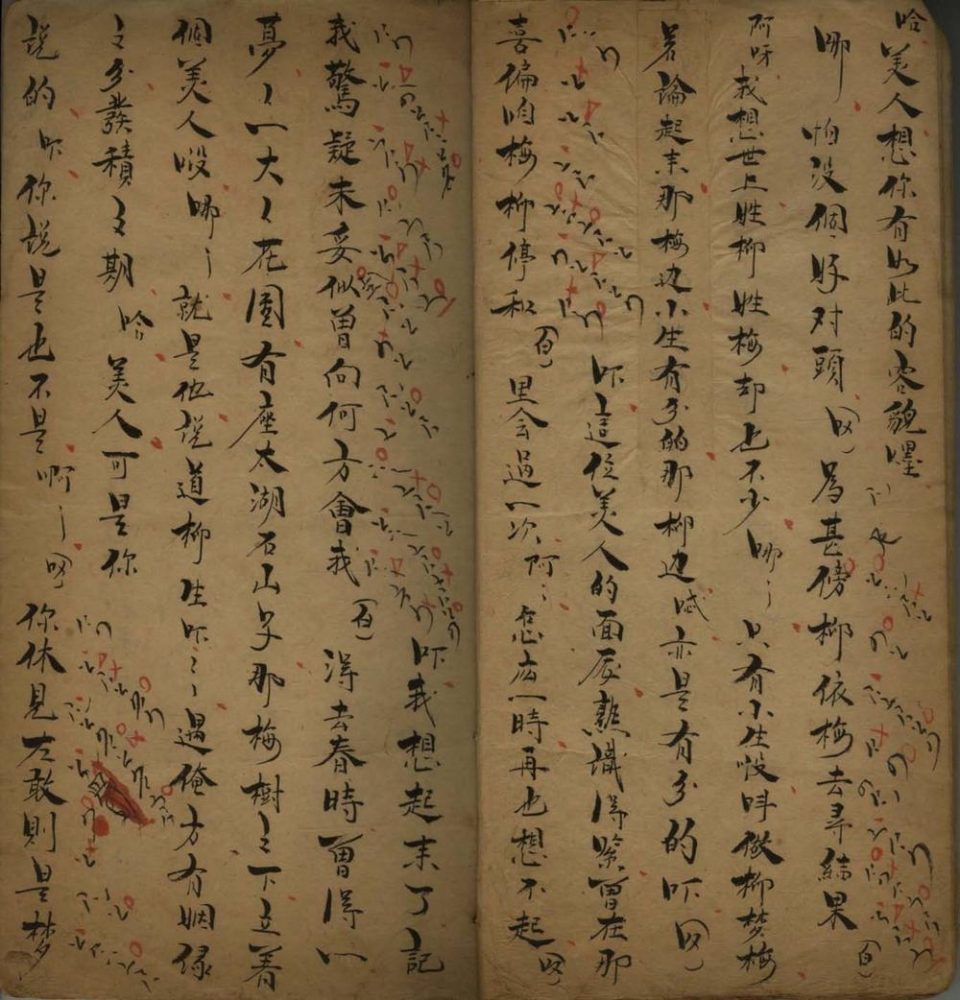 哈美人想你有如此的容貌嘿
哪怕没個好对頭 为甚傍柳依梅去寻結果 (白)
阿呀我想世上姓柳姓梅却也不少哪〻只有小生嗄呌做柳梦梅
若論起来那梅边小生有分的那柳边 亦是有分的吓
喜偏咱梅柳停和 (白)
吓這位美人的面厐熟識得緊曾在那
里会過一次阿〻怎庅一時再也想不起
我驚疑未妥似曾向何方會我 (白)
吓我想起来了記
得去春時曾得一
夢〻一大〻花園有座太湖石山子那梅樹之下立着
個美人嗄哪〻就是他説道柳生吓〻遇俺方有姻缘
之分發積之期哈美人可是你
説的吓你説是也不是啊〻 你休見左敢則是梦